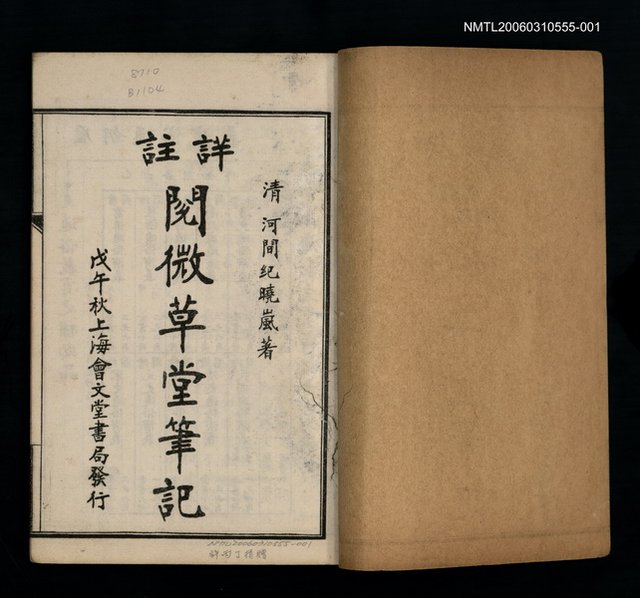 NMTL20060310555-001
8710
B1104
清 河間紀曉嵐著
詳註
閱微草堂筆記
戊午秋上海會文堂書局發行
NMTL20060310555-001